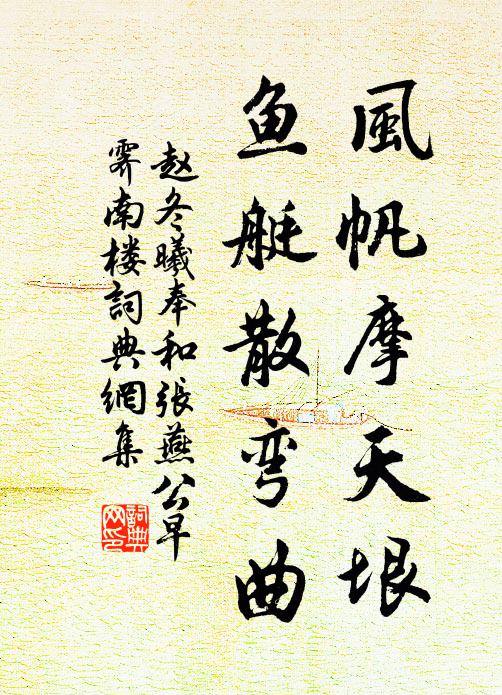 風帆摩天垠
鱼艇散弯曲
赵冬曦奉和張燕公早
霁南楼詞典網集
詞典网印